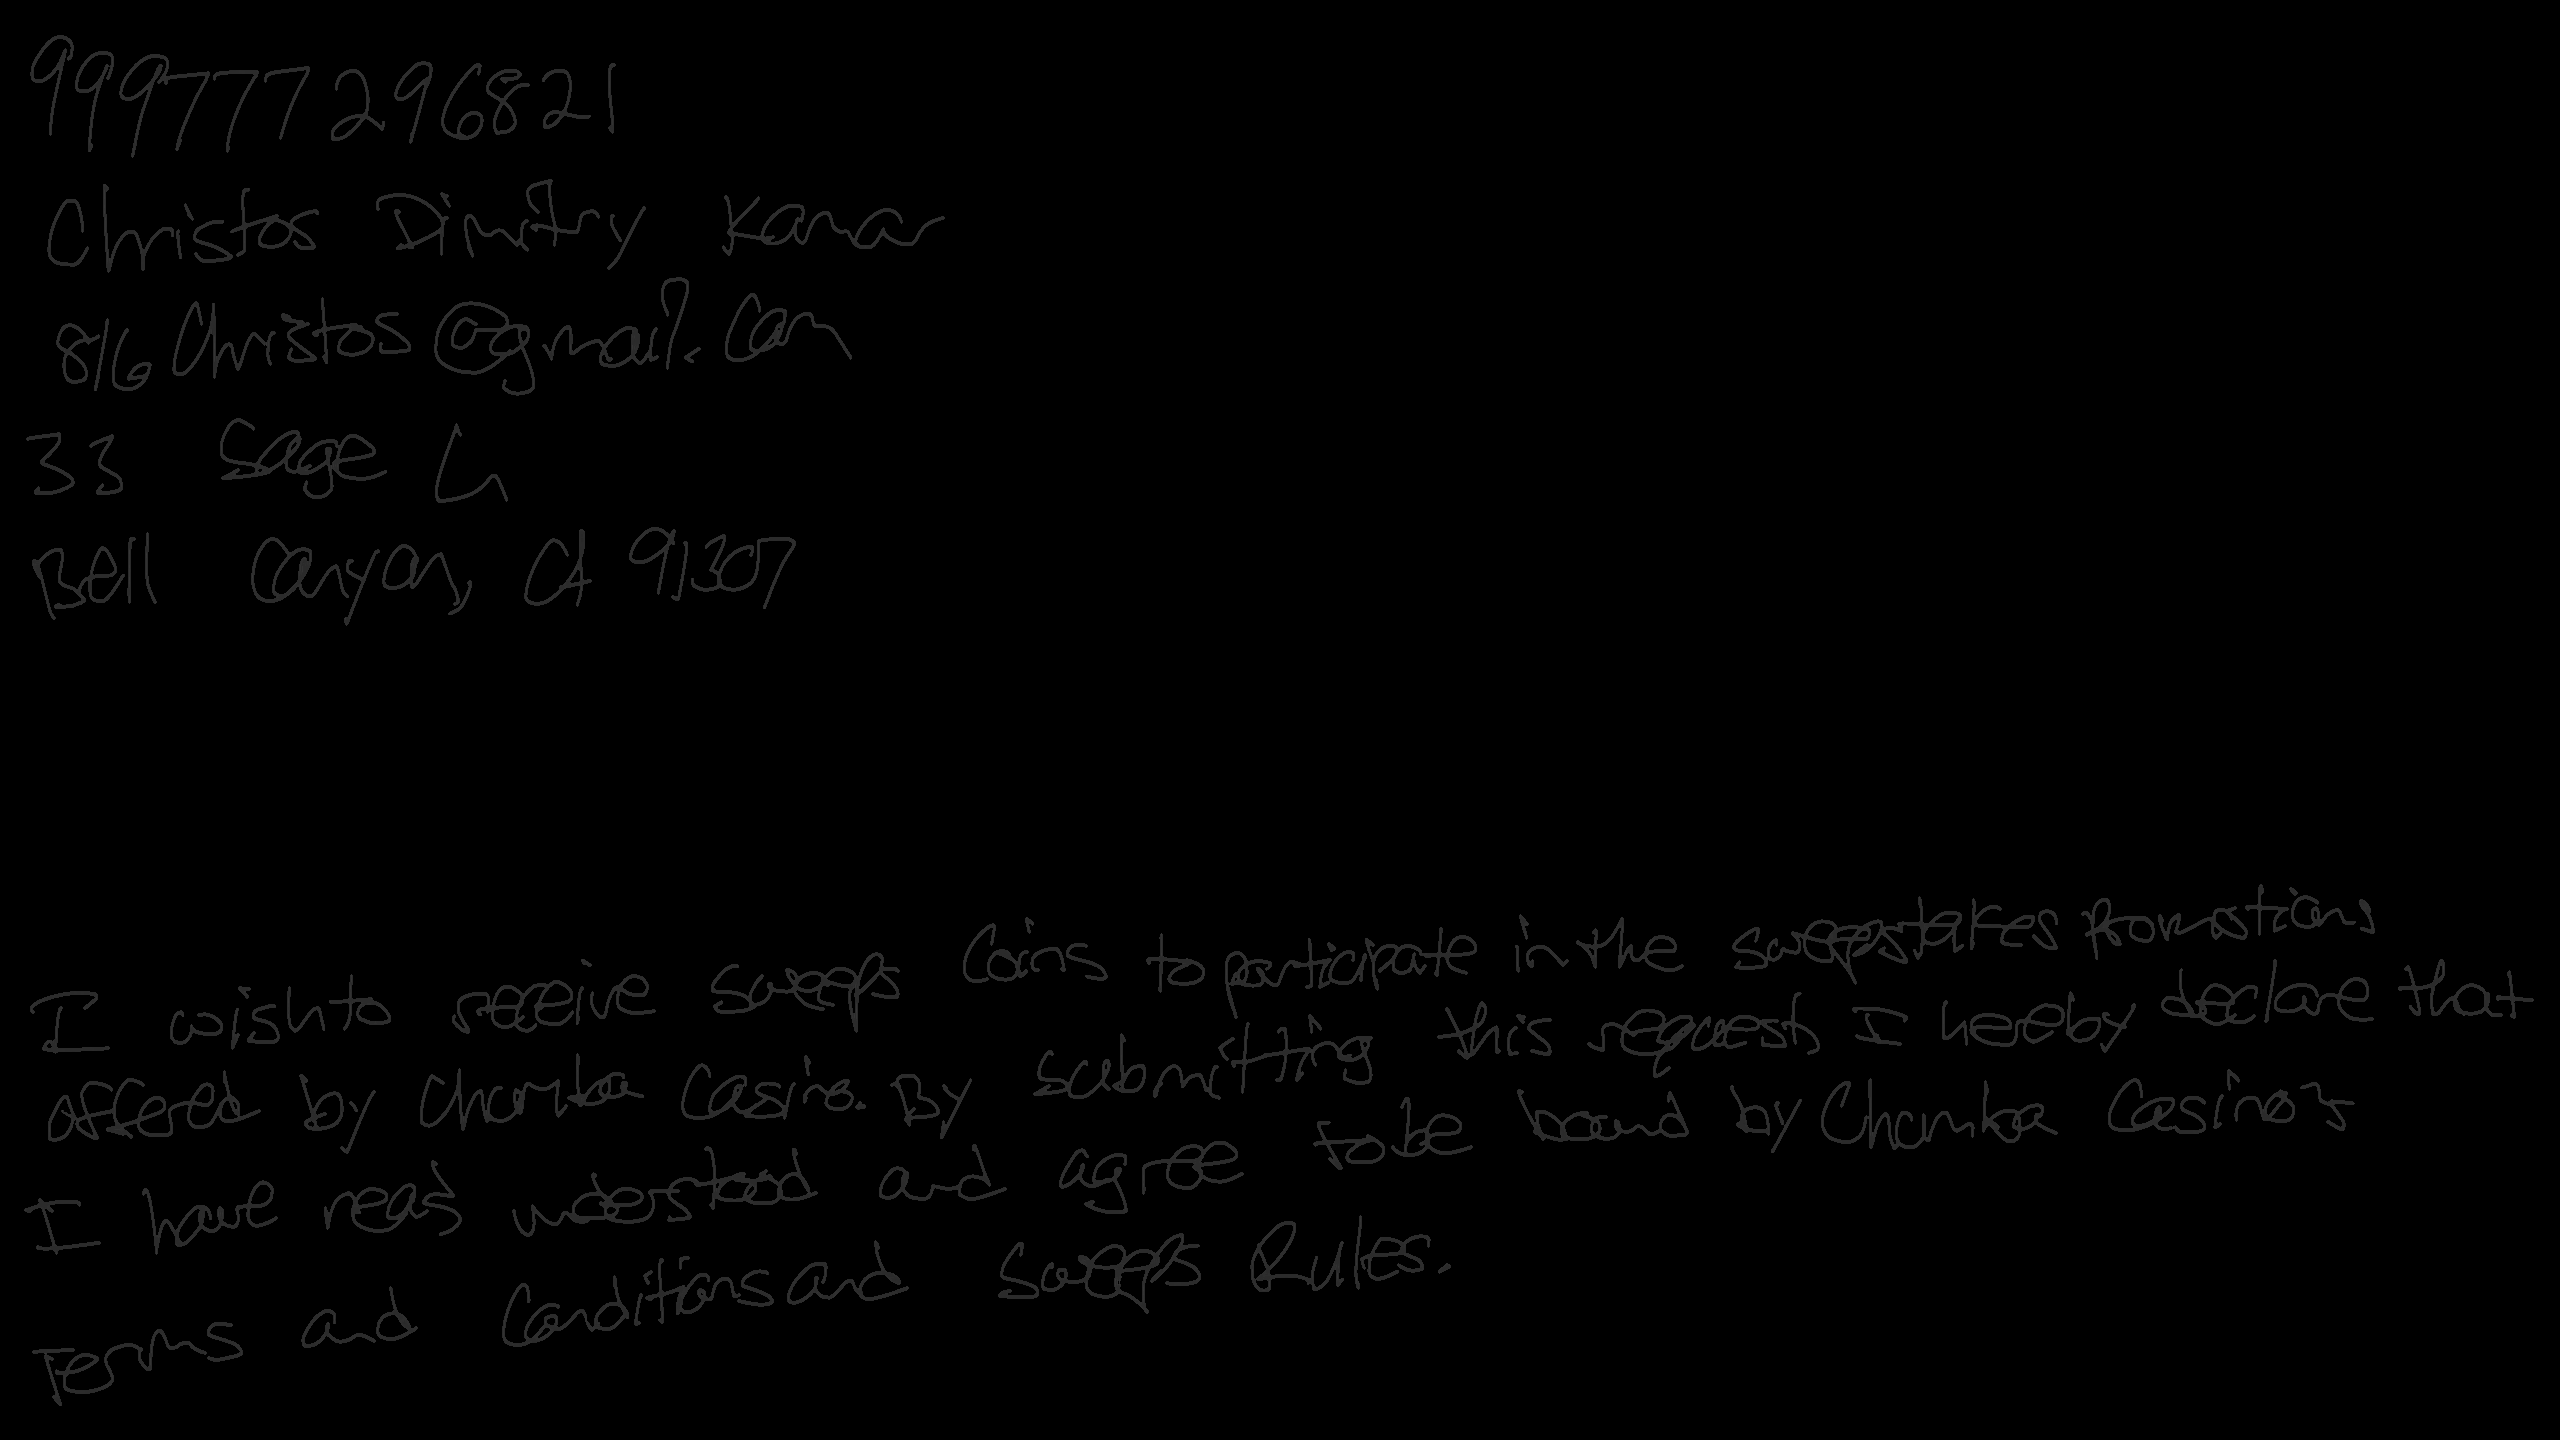 999777296821
Christos Dimitry Kanar
816Christos@gmail.com
33 Sage Ln
Bell Canyon, CA 91307
I wish to receive sweeps Coins to participate in the sweepstakes promotions
offered by Chumba Casino. By submitting this request, I hereby declare that
I have read understood and agree to be bound by Chumba Casino's
Terms and Conditions and Sweeps Rules.